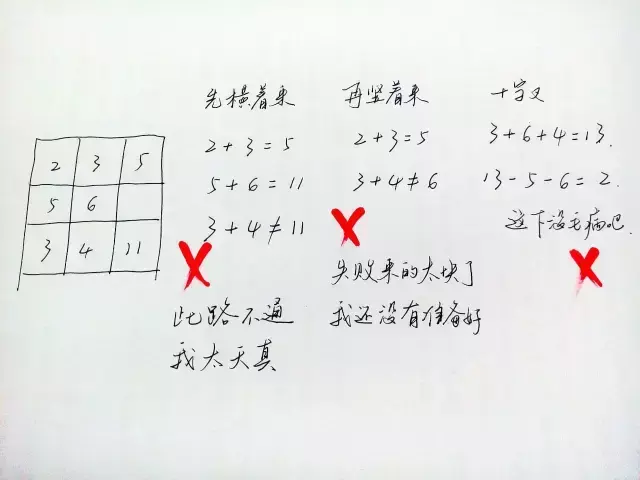 2 3 5
5 6
3 4 11
先横着来
2+3=5
5+6=11
3+4≠11
此路不通
我太天真
再竖着来
2+3=5
3+4≠6
失败来的太块了
我还没有准备好
十字叉
3+6+4=13.
13-5-6=2.
这下没毛病吧.